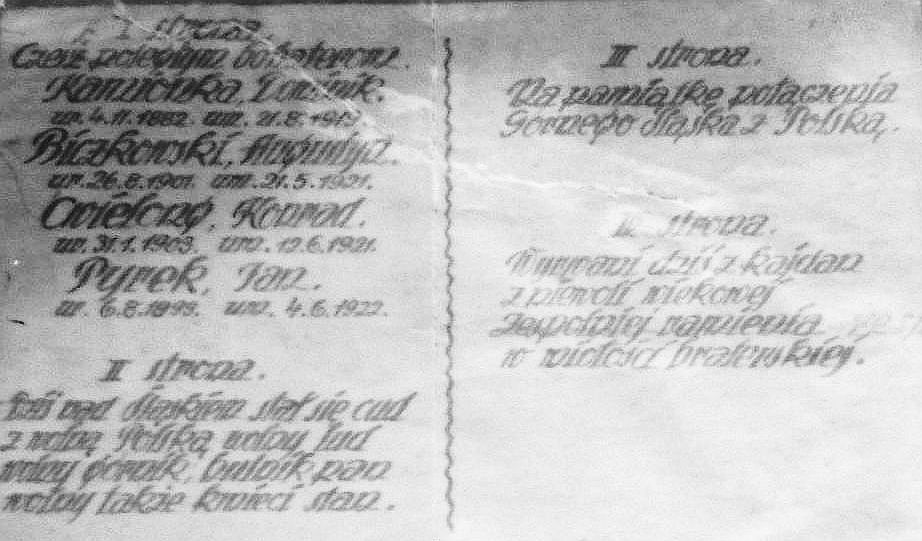 I strona.
Cześć poległym bohaterom.
Kamionka, Dominik.
ur. 4.11.1882. um. 21.8.19
Biczkowski, Augustyn.
ur. 26.8.1901. um. 21.5.1921.
Ćwielong, Konrad.
ur. 31.1.1903. um. 12.6.1921.
Pyrek, Jan.
ur. 6.8.1899. um. 4.6.1922.
II strona.
Dziś nad śląskiem stał się cud
z wolną Polską wolny lud
wolny górnik, hutnik, pan
wolny także kmieci stan.
III strona.
Na pamiątkę połączenia
Górnego śląska z Polską.
strona.
Wyrwani dziś z kajdan
z niewoli wiekowej
zespolmy ramienia
w miłości braterskiej.